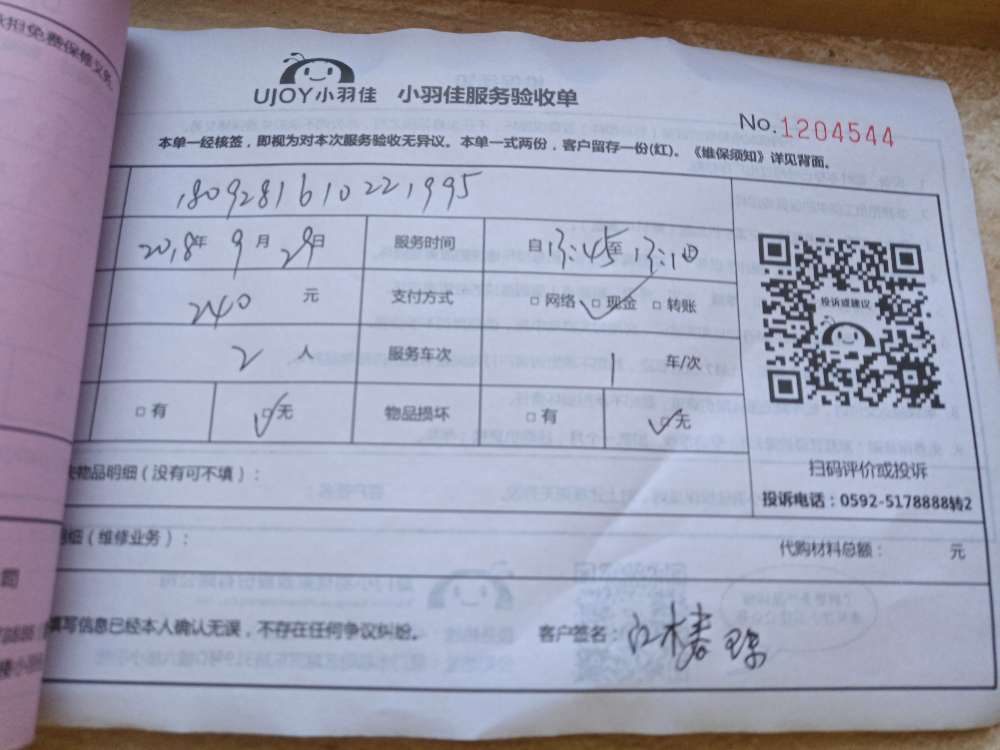 承担免费保修义务
UJOY小羽佳 小羽佳服务验收单
No.1204544
本单一经核签，即视为对本次服务验收无异议。本单一式两份，客户留存一份(红)。《维保须知》详见背面。
1809281610221995
2018年 9月 29日 服务时间 自13:45至
240 元 支付方式 □网络 □现金 □转账
投诉或建议
2 人 服务车次 1 车/次
□有 □无 物品损坏 □有 □无
扫码评价或投诉
失物品明细（没有可不填）：
投诉电话：0592-5178888转2
明细（维修业务）： 代购材料总额： 元
填写信息已经本人确认无误，不存在任何争议纠纷。 客户签名：